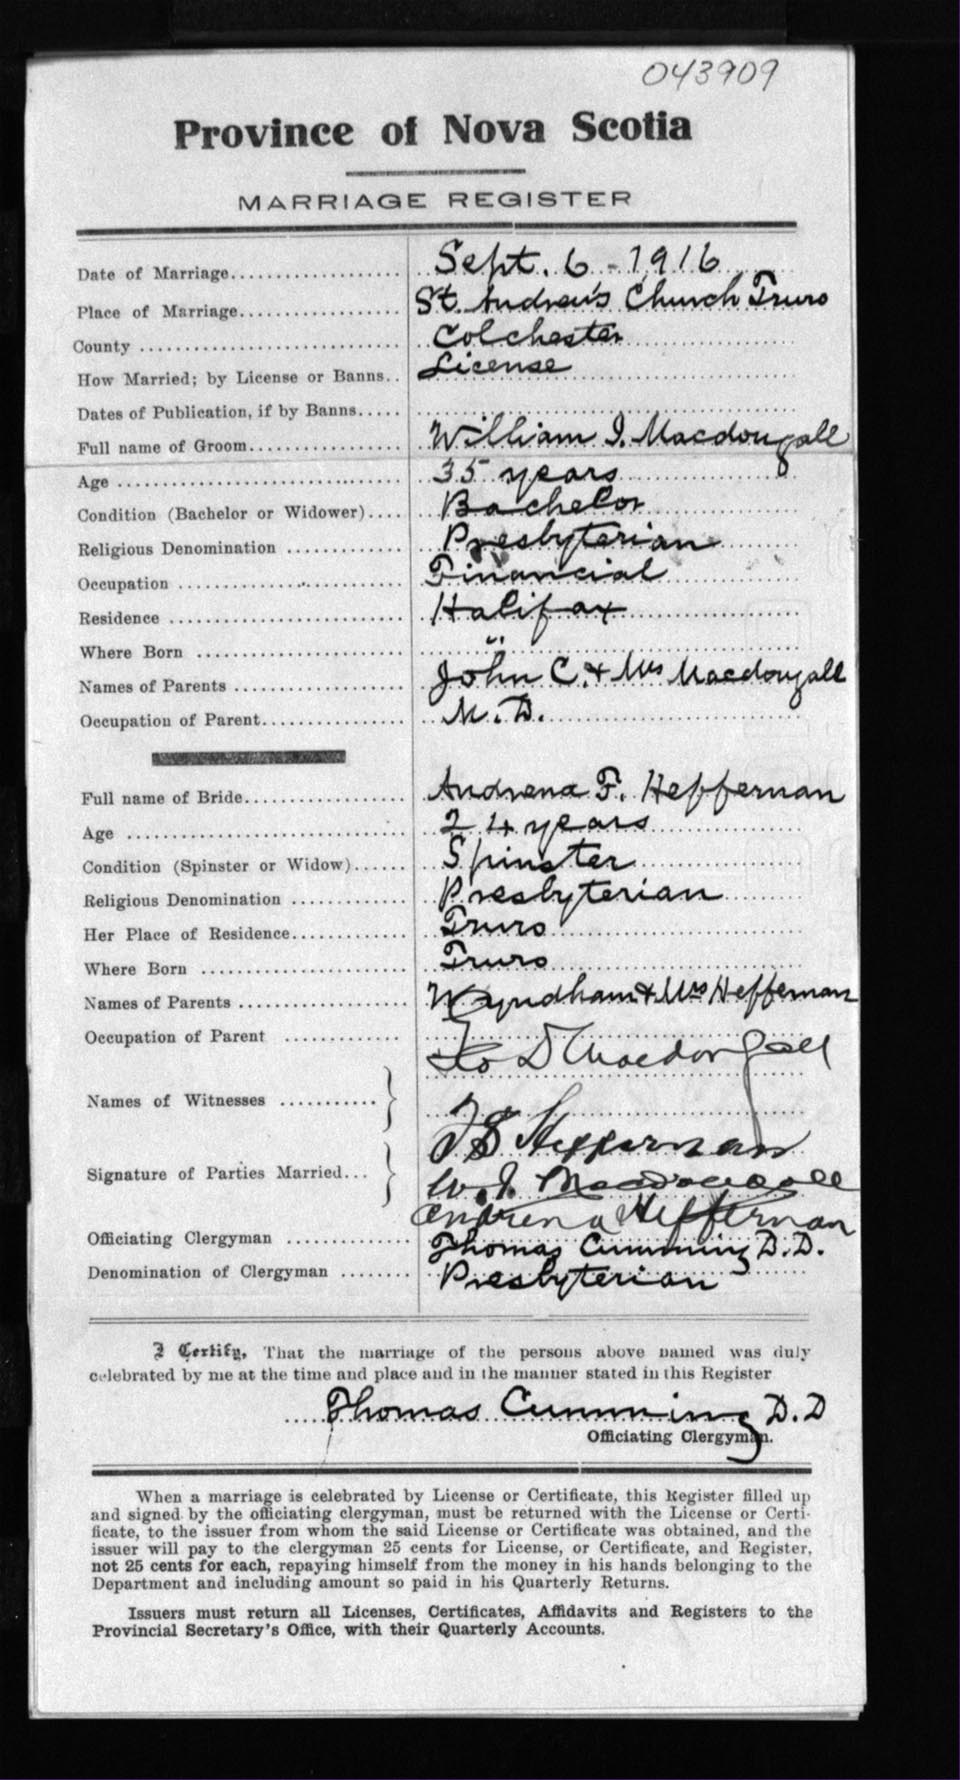 043909
Province of Nova Scotia
MARRIAGE REGISTER
Date of Marriage.................... Sept. 6 - 1916
Place of Marriage................... St. Andrew's Church Truro
County .............................. Colchester
How Married; by License or Banns.. License
Dates of Publication, if by Banns.....
Full name of Groom.................. William I. Macdougall
Age .................................. 35 years
Condition (Bachelor or Widower).... Bachelor
Religious Denomination .............. Presbyterian
Occupation .......................... Financial
Residence ........................... Halifax
Where Born ........................ "
Names of Parents .................... John C. & Mrs Macdougall
Occupation of Parent................. M.D.
Full name of Bride................... Andrena F. Hefferman
Age ................................. 24 years
Condition (Spinster or Widow)...... Spinster
Religious Denomination .............. Presbyterian
Her Place of Residence.............. Truro
Where Born ........................ Truro
Names of Parents .................... Wyndham & Mrs Heffernan
Occupation of Parent ..............
Names of Witnesses ........... D Macdougall
Heffernan
Signature of Parties Married... W. I. Macdougall
Andrena Heffernan
Officiating Clergyman ............... Thomas Cumming D.D.
Denomination of Clergyman ........ Presbyterian
I Certify, That the marriage of the persons above named was duly
celebrated by me at the time and place and in the manner stated in this Register
Thomas Cumming D.D
Officiating Clergyman.
When a marriage is celebrated by License or Certificate, this Register filled up
and signed by the officiating clergyman, must be returned with the License or Certi-
ficate, to the issuer from whom the said License or Certificate was obtained, and the
issuer will pay to the clergyman 25 cents for License, or Certificate, and Register,
not 25 cents for each, repaying himself from the money in his hands belonging to the
Department and including amount so paid in his Quarterly Returns.
Issuers must return all Licenses, Certificates, Affidavits and Registers to the
Provincial Secretary's Office, with their Quarterly Accounts.